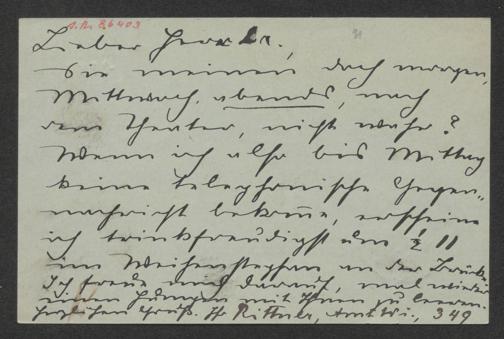 A.N. 86403
Lieber Herr Dr.,
Sie meinen doch morgen,
Mittwoch, abends, nach
dem Theater, nicht wahr?
Wenn ich also bis Mittag
keine telephonische Gegen-
nachricht bekom̅e, erscheine
ich trinkfreudigst um ½ 11
im Weihenstephan an der Brücke
Ich freue mich darauf, mal wieder
einen Humpen mit Ihnen zu leeren.
Herzlichen Gruß. Rittner, Amt VI., 349